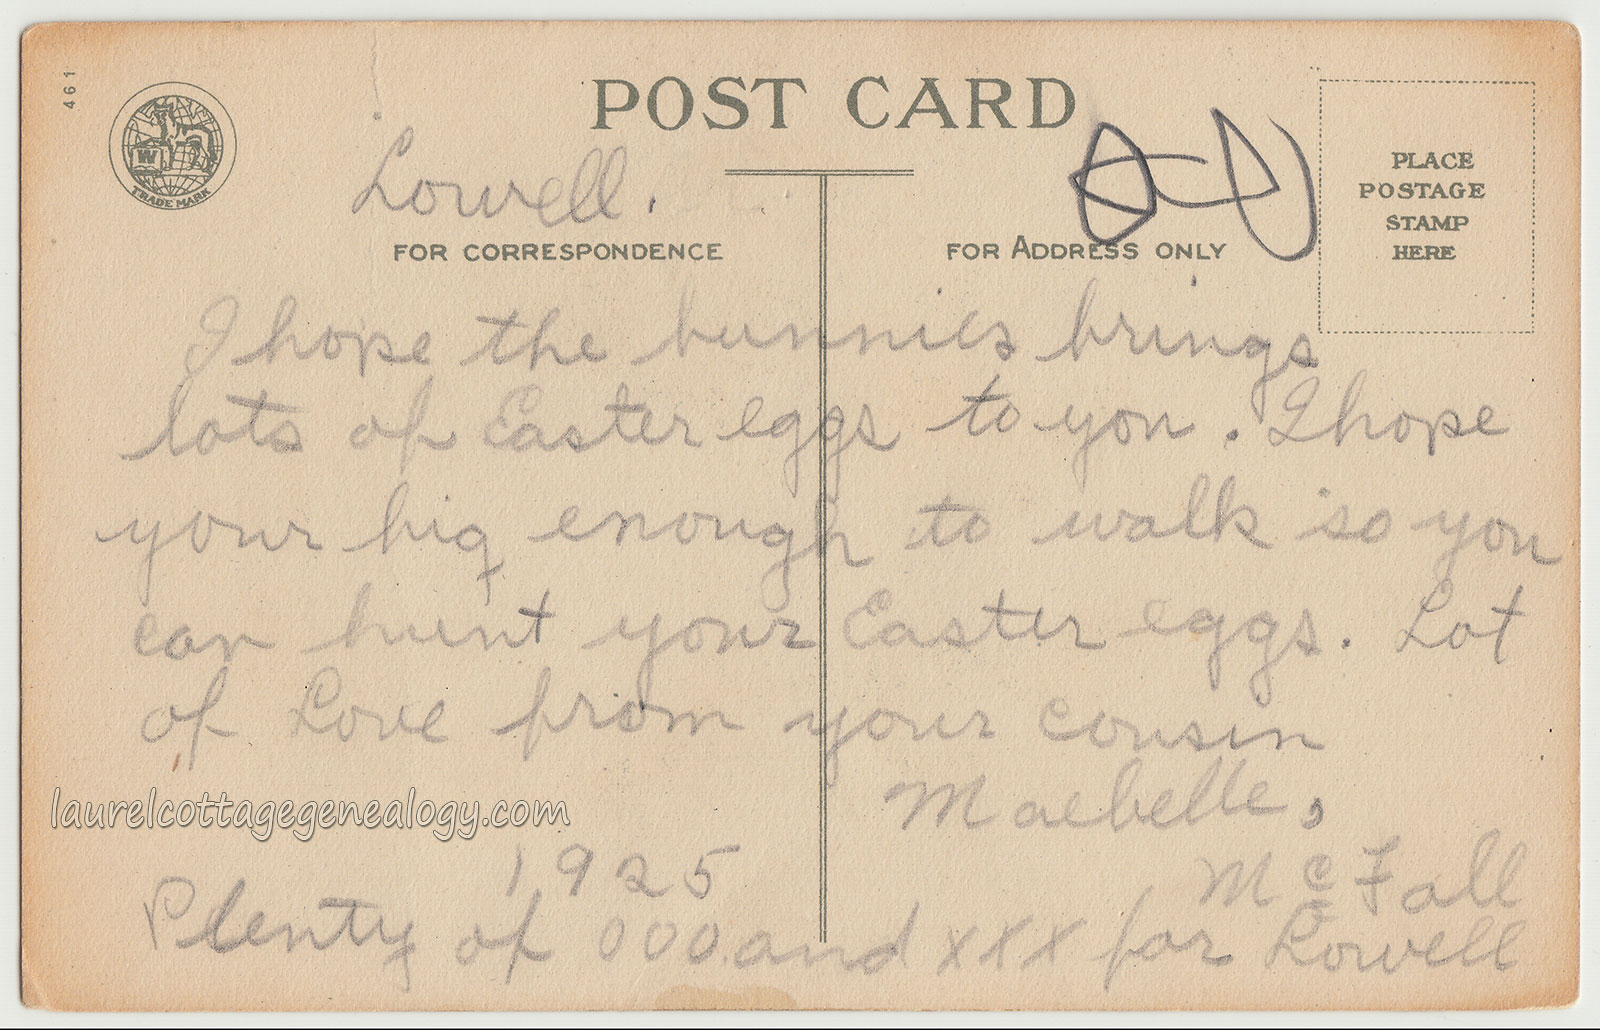 461
POST CARD
W
TRADE MARK
PLACE
POSTAGE
STAMP
HERE
Lowell.
FOR CORRESPONDENCE
FOR ADDRESS ONLY
I hope the bunnies brings
lots of Easter eggs to you. I hope
your big enough to walk so you
can hunt your Easter eggs. Lot
of Love from your cousin
Maebelle,
McFall
1925
Plenty of OOO and xxx for Lowell
laurelcottagegenealogy.com